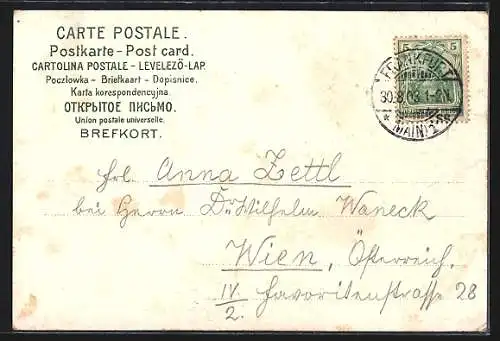 CARTE POSTALE.
Postkarte – Post card.
CARTOLINA POSTALE – LEVELEZŐ-LAP.
Poczlowka – Briefkaart – Dopisnice.
Karta korespondencyjna.
ОТКРЫТОЕ ПИСЬМО.
Union postale universelle.
BREFKORT.
5 5
FRANKFURT
30.8.03. 1-2N.
* (MAIN) 1
Frl. Anna Zettl
bei Herrn Dr. Wilhelm Waneck
Wien, Österreich.
IV/2. Favoritenstrasse 28